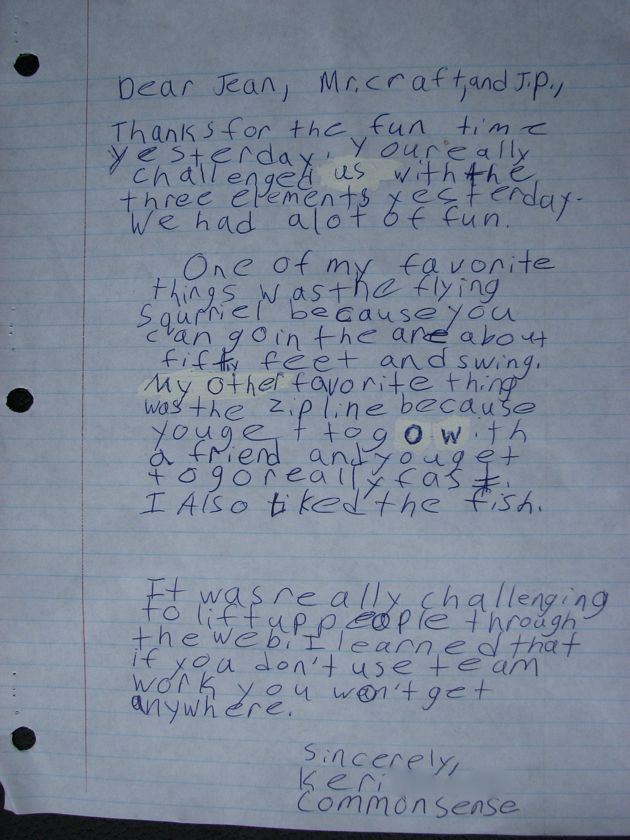 Dear Jean, Mr. craft, and J.p.,
Thanks for the fun time
yesterday. You really
challenged us with the
three elements yesterday.
We had alot of fun.
One of my favorite
things was the flying
Squrriel because you
can go in the are about
fifty feet and swing.
My other favorite thing
was the zip line because
you get to go with
a friend and you get
to go really fast.
I Also liked the fish.
It was really challenging
to lift up people through
the web. I learned that
if you don't use team
work you won't get
anywhere.
Sincerely,
Keri
Commonsense